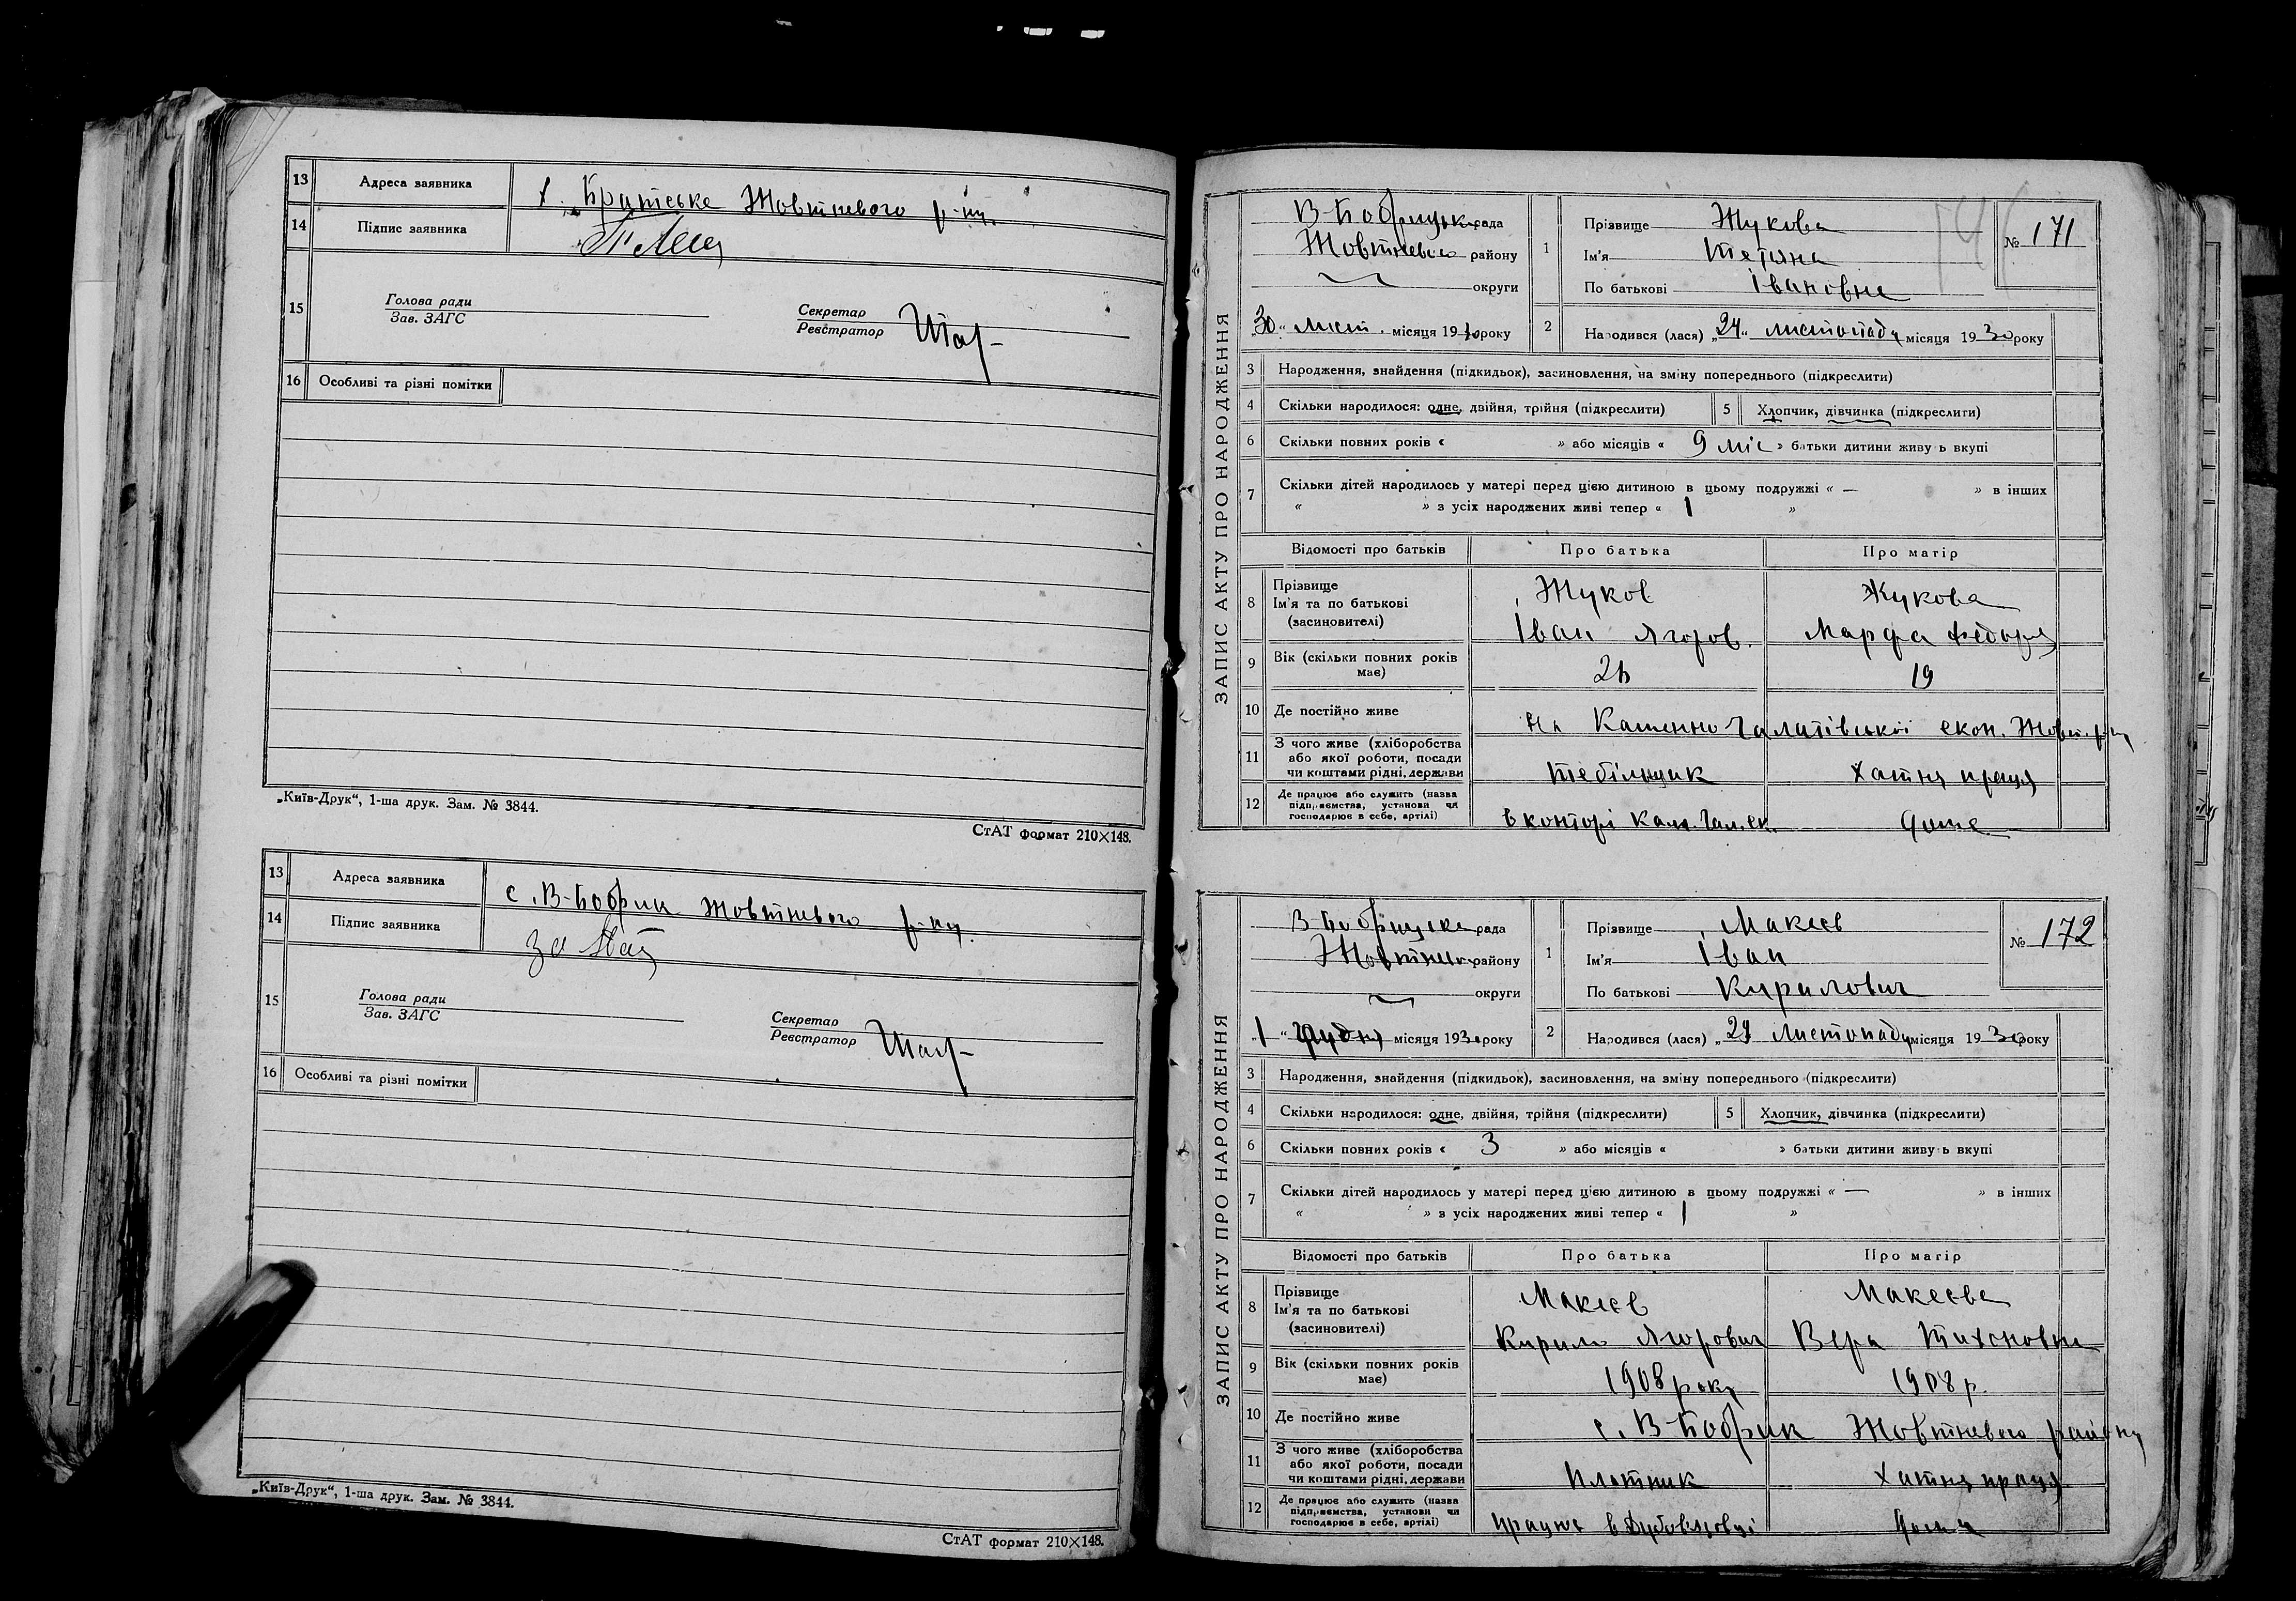 13 Адреса заявника х. Братське Жовтневого р-ну.
14 Підпис заявника
15 Голова ради Секретар
Зав. ЗАГС Реєстратор
16 Особливі та різні помітки
„Київ-Друк“, 1-ша друк. Зам. № 3844.
СтАТ формат 210×148.
13 Адреса заявника с. В-Бобрик Жовтневого р-ну.
14 Підпис заявника за
15 Голова ради Секретар
Зав. ЗАГС Реєстратор
16 Особливі та різні помітки
„Київ-Друк“, 1-ша друк. Зам. № 3844.
СтАТ формат 210×148.
ЗАПИС АКТУ ПРО НАРОДЖЕННЯ
В-Бобрицьк рада
Жовтневого району
округи
„30“ лист. місяця 1930 року
1 Прізвище Жукова
Ім'я Тетяна
По батькові Івановна
№ 171
2 Народився (лася) „24“ листопаду місяця 1930 року
3 Народження, знайдення (підкидьок), засиновлення, на зміну попереднього (підкреслити)
4 Скільки народилося: одне, двійня, трійня (підкреслити) 5 Хлопчик, дівчинка (підкреслити)
6 Скільки повних років « » або місяців « 9 міс » батьки дитини живуть вкупі
7 Скільки дітей народилось у матері перед цією дитиною в цьому подружжі « — » в інших
« » з усіх народжених живі тепер « 1 »
Відомості про батьків Про батька Про матір
8 Прізвище Жуков Жукова
Ім'я та по батькові
(засиновителі) Іван Ягоров. Марфа
9 Вік (скільки повних років має) 19
10 Де постійно живе На екон. Жовт. р-ну
11 З чого живе (хліборобства
або якої роботи, посади
чи коштами рідні, держави Хатня праця
12 Де працює або служить (назва
підприємства, установи чи
господарює в себе, артілі) в конторі Кам. Гал. ек. дома
ЗАПИС АКТУ ПРО НАРОДЖЕННЯ
В-Бобрицька рада
Жовтнев району
округи
„1“ грудня місяця 1930 року
1 Прізвище Макєєв
Ім'я Іван
По батькові Кирилович
№ 172
2 Народився (лася) „29 Листопаду місяця 1930 року
3 Народження, знайдення (підкидьок), засиновлення, на зміну попереднього (підкреслити)
4 Скільки народилося: одне, двійня, трійня (підкреслити) 5 Хлопчик, дівчинка (підкреслити)
6 Скільки повних років « 3 » або місяців « » батьки дитини живуть вкупі
7 Скільки дітей народилось у матері перед цією дитиною в цьому подружжі « — » в інших
« » з усіх народжених живі тепер « 1 »
Відомості про батьків Про батька Про матір
8 Прізвище Макєєв Макеєва
Ім'я та по батькові
(засиновителі) Кирило Ягорович Вера Тихоновна
9 Вік (скільки повних років має) 1908 року 1908 р.
10 Де постійно живе с. В-Бобрик Жовтневого району
11 З чого живе (хліборобства
або якої роботи, посади
чи коштами рідні, держави Плотник Хатня праця
12 Де працює або служить (назва
підприємства, установи чи
господарює в себе, артілі) працює в дома